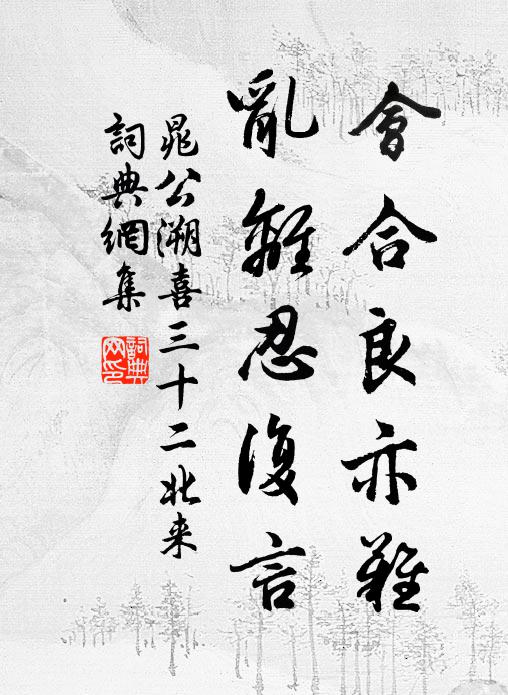 會合良亦難
亂離忍復言
晁公溯喜三十二北来
詞典網集
詞典网印